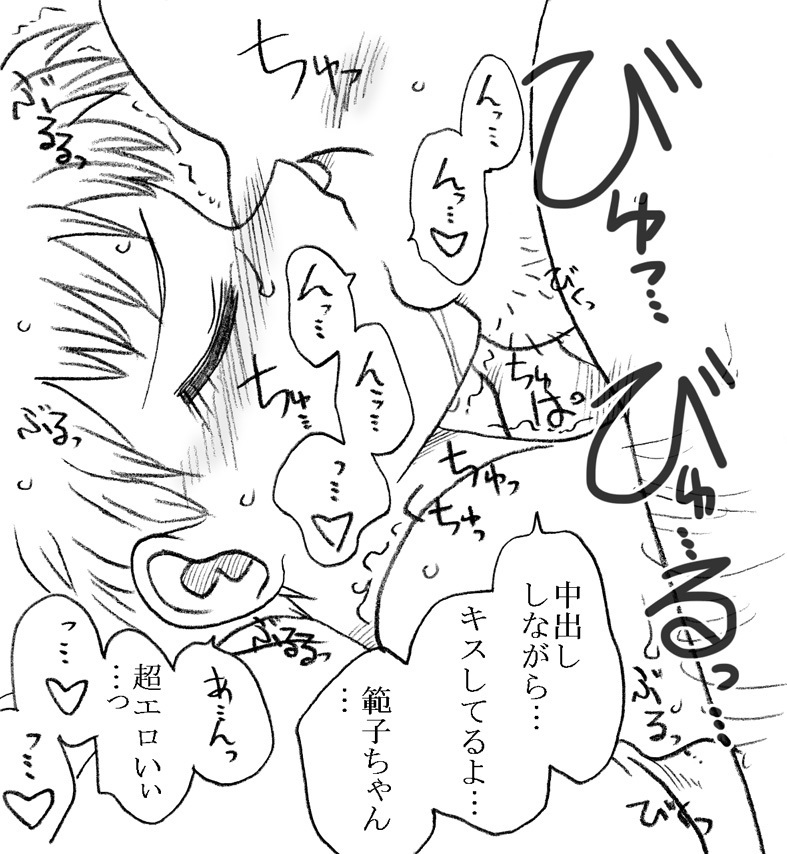 びゅっ…
びゅ…るっ…
んっ…
んっ…♡
びくっ
ちゅっ
ちゅぱ°
ぶーるるっ
んっ…
んっ…
っ…♡
ちゅ…
ちゅっ
ちゅっ
ぶるっ
中出し
しながら…
キスしてるよ…
範子ちゃん
…
ぶるっ
びくっ
ぶるるっ
あ…んっ
超エロいぃ
…っ
っ…♡
っ…♡